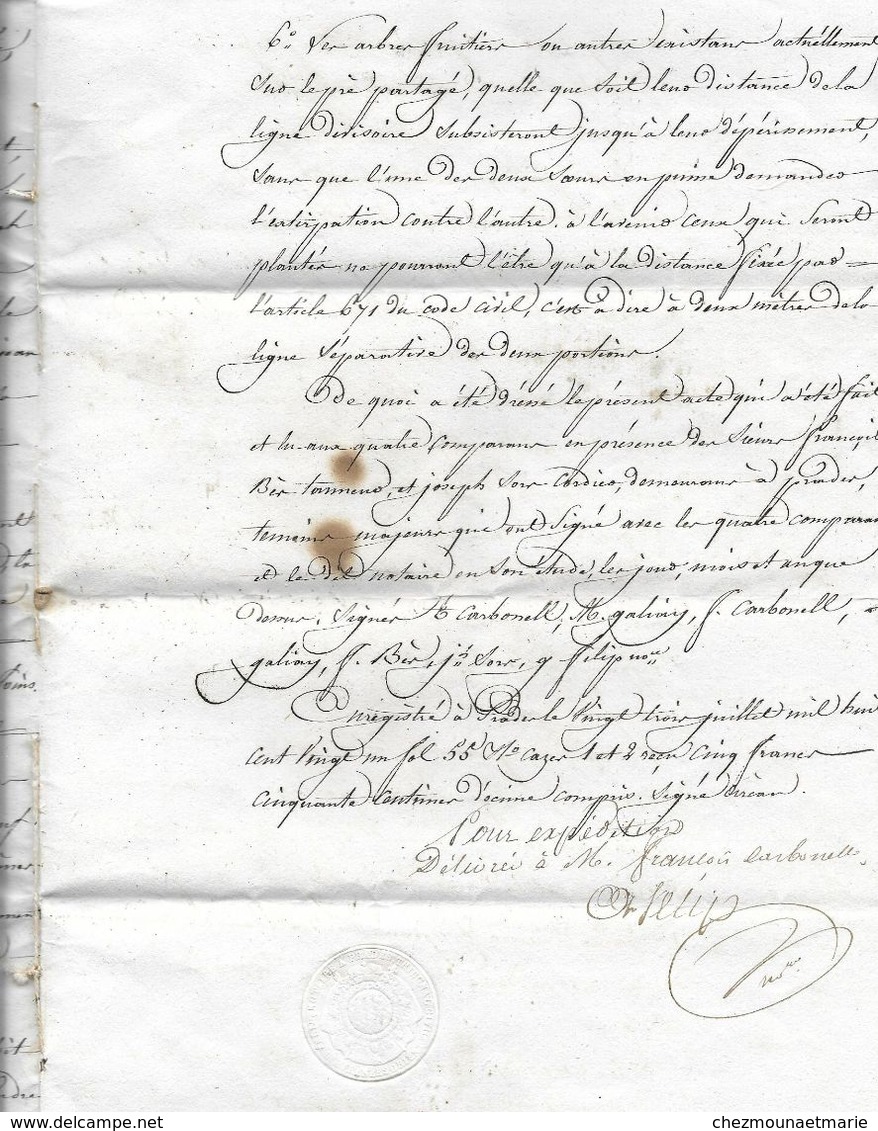 6.° Les arbres fruitiers ou autres existans actuéllement
sur le pré partagé, quelle que soit leur distance de la
ligne divisoire subsisteront jusqu'à leur dépérissement,
sans que l'une des deux sœurs en puisse demander
l'extirpation contre l'autre. à l'avenir ceux qui seront
plantés ne pourront l'être qu'à la distance fixée par =
l'article 671 du code civil, c'est à dire à deux mètres de la
ligne séparative des deux portions.
De quoi a été dréssé le présent acte qui a été fait
et lu aux quatre comparans en présence des Sieurs françois
Bès tanneur, et joseph Sors Cordier, demeurans à prades,
temoins majeurs qui ont signé avec les quatre comparans
et le dit notaire en son étude, les jour, mois et an que
dessus. Signés Carbonell, M. galiay, f. Carbonell,
galiay, f. Bès, jh Sors, filip nore
Enregistré à Prades le vingt trois juillet mil huit
cent vingt un fol 55 Vo cazes 1 et 2 reçu cinq francs
cinquante centimes décime compris. Signé
Pour expédition
Délivrée à M. françois Carbonell.
chezmounaetmarie